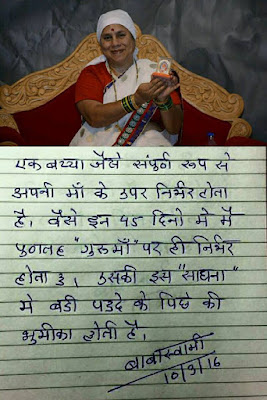 एक बच्चा जैसे संपुर्ण रूप से
अपनी माँ के उपर निर्भर होता
है, वैसे इन 45 दिनो मे मै
पुणतह "गुरुमाँ" पर ही निर्भर
होता हु, उसकी इस "साधना"
मे बडी पडदे के पिछे की
भुमीका होती है,
बाबास्वामी
10/3/16